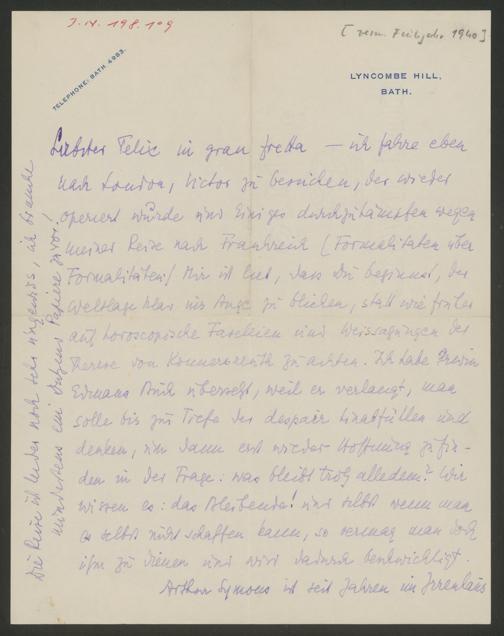 J.N. 198.109
[verm. Frühjahr 1940]
TELEPHONE: BATH 4983.
LYNCOMBE HILL,
BATH.
Liebster Felix in gran fretta — ich fahre eben
nach London, Victor zu besuchen, der wieder
operiert wurde und Einiges durchzukämpfen wegen
meiner Reise nach Frankreich (Formalitäten über
Formalitäten) Mir ist lieb, dass Du beginnst, der
Weltlage klar ins Auge zu blicken, statt wie früher
auf horoscopische Faseleien und Weissagungen der
Therese von Konnersreuth zu achten. Ich habe Irwin
Edmans Buch übersetzt, weil er verlangt, man
solle bis zur Tiefe der despair hinabfüllen und
denken, um dann erst wieder Hoffnung zu fin-
den in der Frage: was bleibt trotz alledem? Wir
wissen es: das Bleibende! und selbst wenn man
es selbst nicht schaffen kann, so vermag man doch
ihm zu dienen und wird dadurch
Arthur Symons ist seit Jahren im Irrenhaus
Die Reise ist leider noch sehr ungewiss, ich brauche
mindestens ein Dutzend Papiere zuvor!